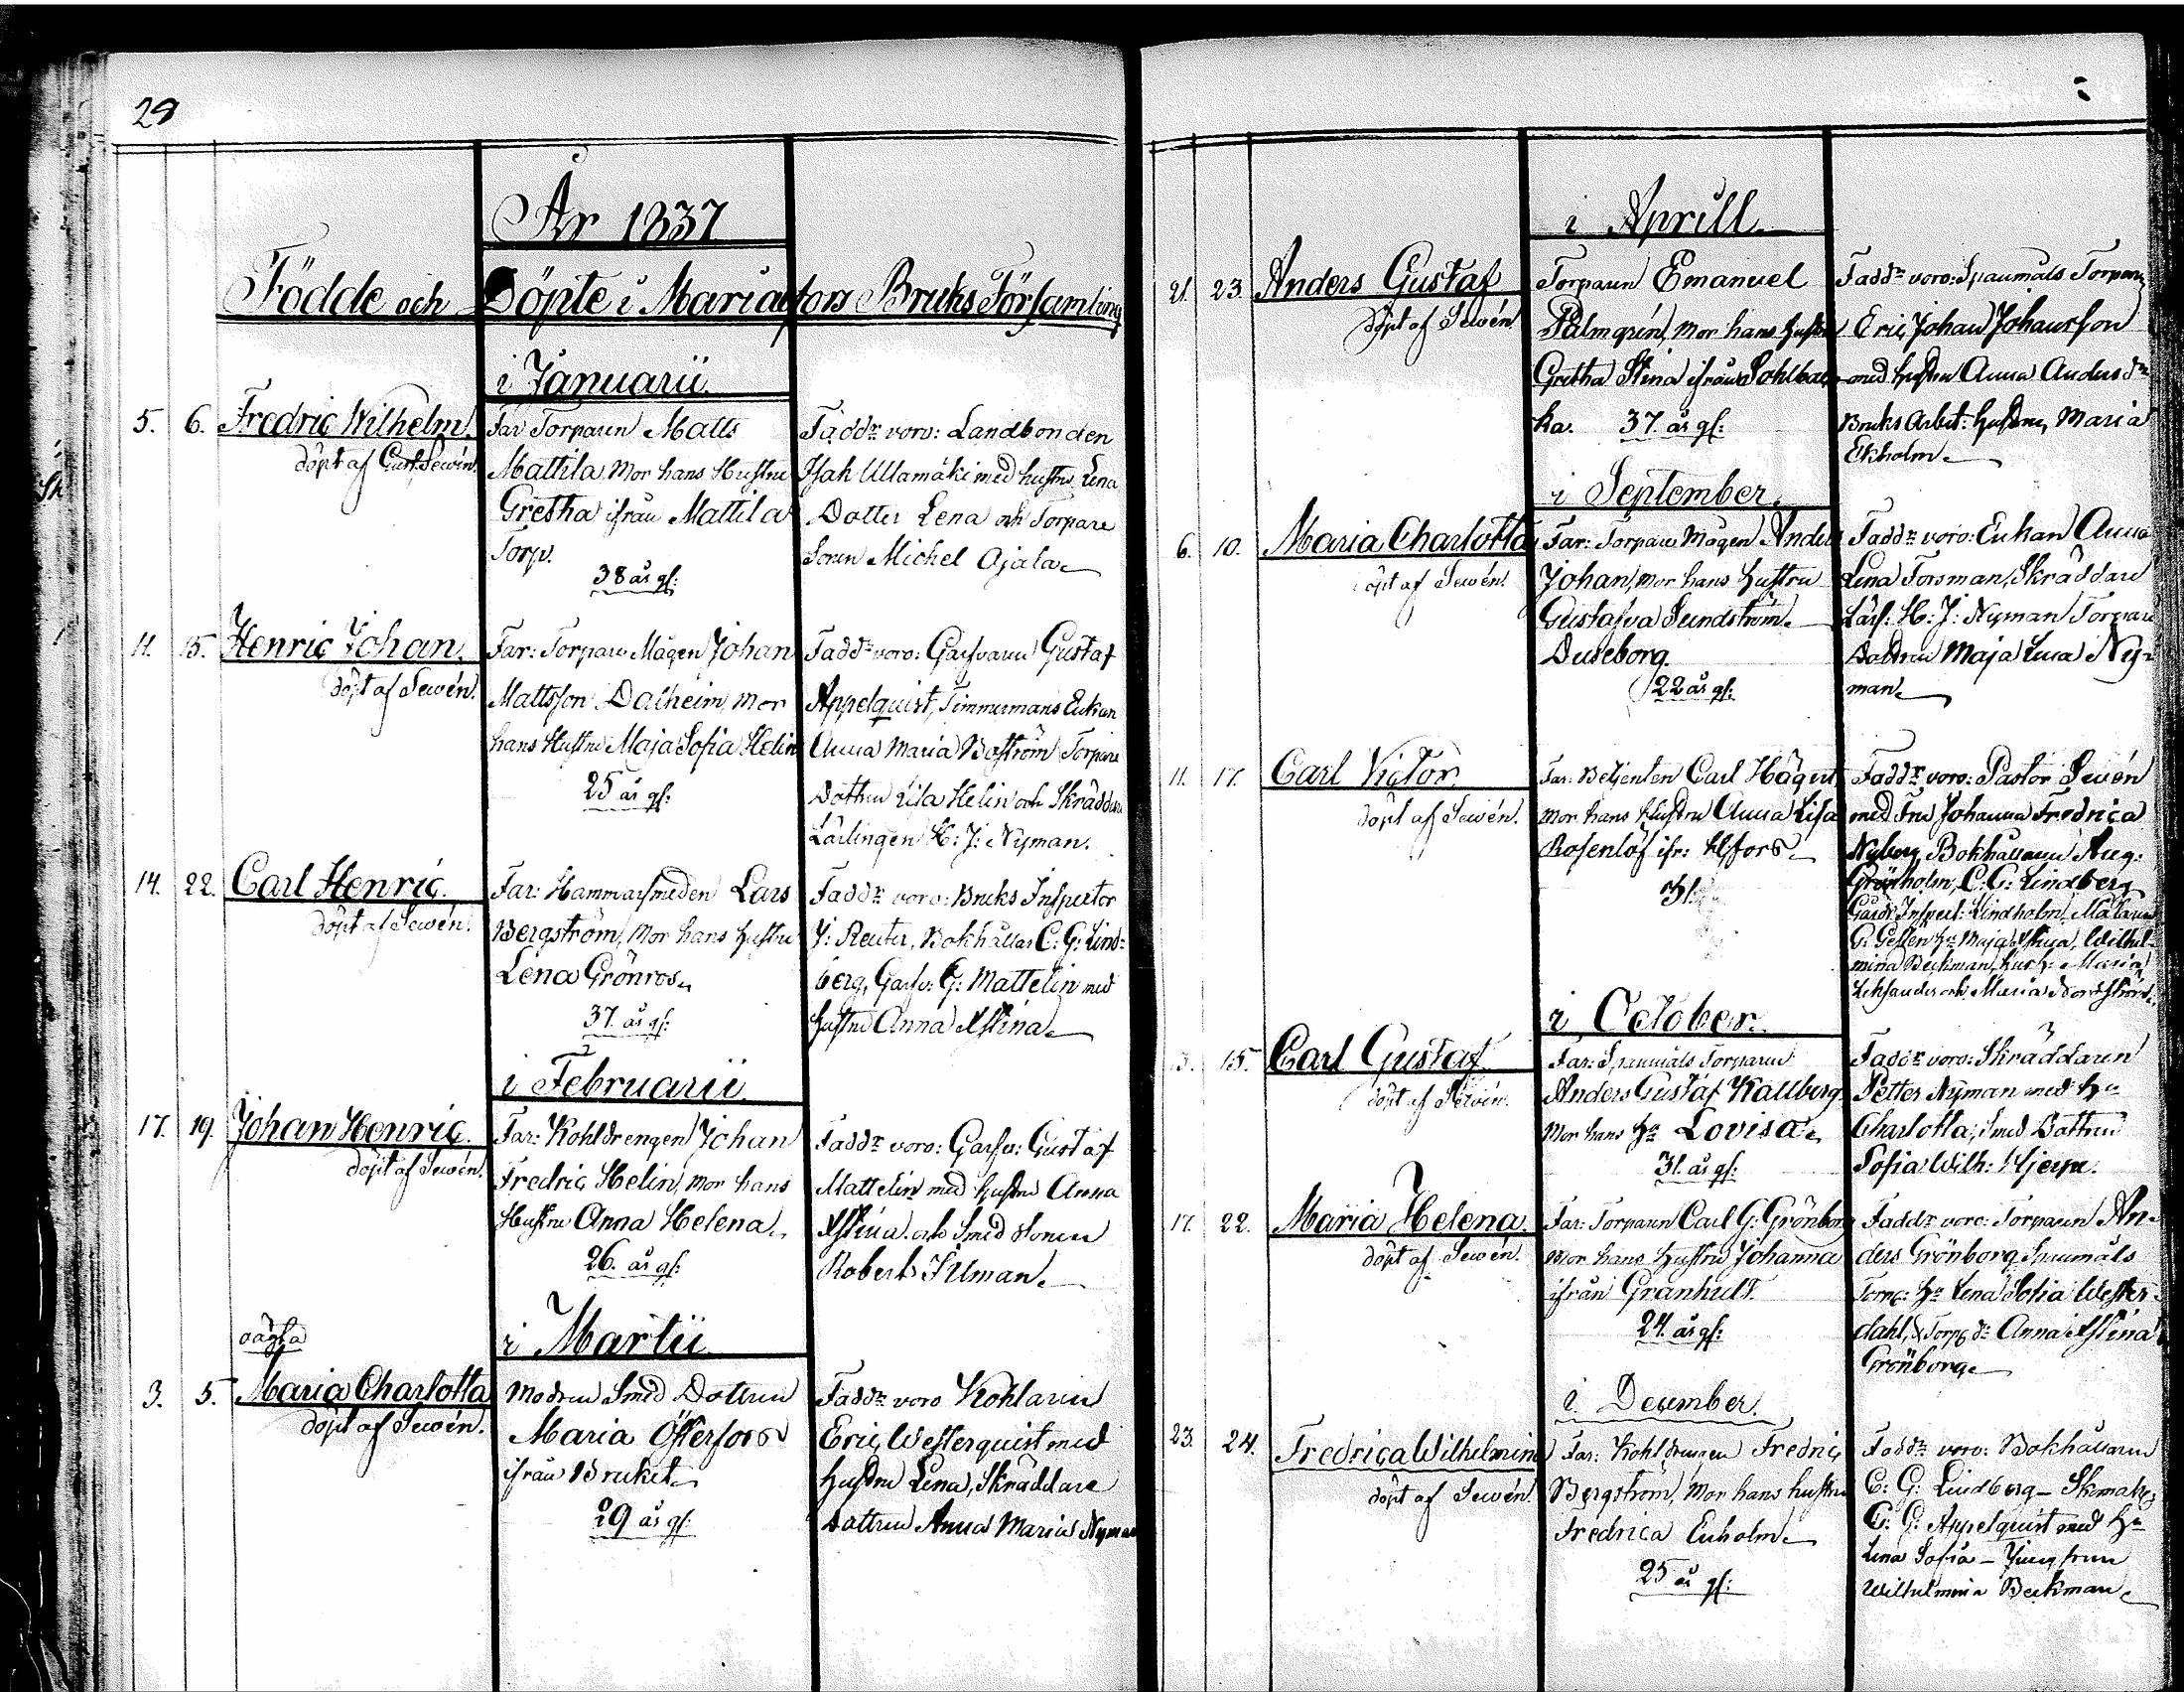 29
År 1837
Födde och Döpte i Mariæfors Bruks Församling
i Januarii
5. 6. Fredric Wilhelm.
döpt af Sewén.
Far Torparen Matts
Mattila Mor hans Hustru
Gretha ifrån Mattila
Torp.
38 år gl:
Faddr voro: Landbonden
Isak Ullamäki med hustru Lena
Dotter Lena och Torpare
Sonen Michel Ojala
11. 15. Henric Johan.
döpt af Sewén.
Far: Torpare Mågen Johan
Mattsson Dalheim, Mor
hans Hustru Maja Sofia Helin
25 år gl:
Faddr voro: Garfvaren Gustaf
Appelquist, Timmermans Enkan
Anna Maria Boström Torpare
Dottren Lisa Helin och Skräddare
Lärlingen H: J: Nyman.
14. 22. Carl Henric.
döpt af Sewén.
Far: Hammarsmeden Lars
Bergström, Mor hans hustru
Lena Grönroos
37. år gl:
Faddr voro: Bruks Inspector
J: Reuter, Bokhållar C: G: Lind=
berg, Garfv: G: Mattelin med
hustru Anna Stina
i Februarii
17. 19. Johan Henric.
döpt af Sewén.
Far: Kohldrengen Johan
Fredric Helin, mor hans
Hustru Anna Helena
26. år gl:
Faddr voro: Garfv: Gustaf
Mattelin med hustru Anna
Stina och Smed Sonen
Robert
i Martii
oägta
3. 5. Maria Charlotta
döpt af Sewén.
Modren Smed Dottren
Maria Österfors
ifrån Bruket
29 år gl:
Faddr voro Kohlaren
Eric Westerquist med
hustru Lena, Skräddare
Dottren Anna Maria Nyman
i Aprill
21. 23. Anders Gustaf
döpt af Sewén
Torparen Emanuel
Palmgrén, Mor hans hustru
Gretha Stina ifrån Sohlbac
ka. 37. år gl:
Faddr voro: Spanmåls Torparen
Eric Johan Johansson
med hustru Anna Andersdr
Bruks Arbet: hustrun Maria
Ekholm
i September.
6. 10. Maria Charlotta
döpt af Sewén.
Far: Torpare Mågen Anders
Johan, mor hans hustru
Gustafva Sundström
Duseborg.
22 år gl:
Faddr voro: Enkan Anna
Lena Forsman, Skräddare
Lärl: H: J: Nyman Torpare
Dottren Maja Lena Ny=
man
11. 17. Carl Victor
döpt af Sewén.
Far: Betjenten Carl Hägert
Mor hans Hustru Anna Lisa
Rosenlöf ifr: H:fors
Faddr voro: Pastor Sewén
med Fru Johanna Fredrica
Nyberg, Bokhållaren Aug:
Grönholm, C: G: Lindberg
Gårds Inspect: Lindholm, Målaren
G. hu Maja Stina, Wilhel=
mina Beckman, Maria
och Maria Nordström
i October.
3. 15. Carl Gustaf
döpt af Sewén.
Far: Spanmåls Torparen
Anders Gustaf Kallberg
Mor hans hu Lovisa
31. år gl:
Faddr voro: Skräddaren
Petter Nyman med hu
Charlotta, Smed Dottren
Sofia Wilh: Hjerpe.
17. 22. Maria Helena.
döpt af Sewén.
Far: Torparen Carl G: Grönborg
Mor hans hustru Johanna
ifrån Granhult.
24. år gl:
Faddr voro: Torparen An=
ders Grönborg Spanmåls
Torp: hu Lena Sofia Wester=
dahl, & Torp. dr Anna Stina
Grönborg
i December.
23. 24. Fredrica Wilhelmin
döpt af Sewén.
Far: Kohldrengen Fredric
Bergström, Mor hans hustru
Fredrica Enholm
25 år gl:
Faddr voro: Bokhållaren
C: G: Lindberg – Skomak:
G: G: Appelquist med hu
Lena Sofia – Jungfrun
Wilhelmina Beckman